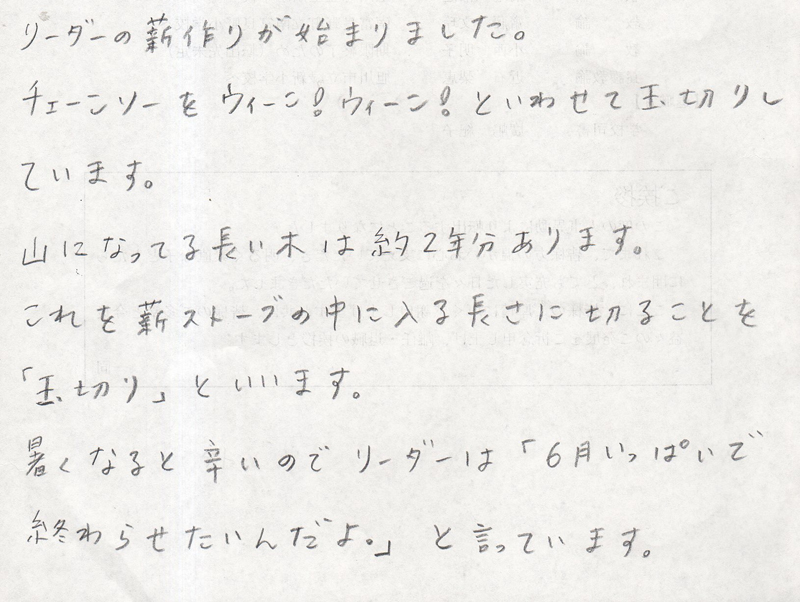 リーダーの薪作りが始まりました。
チェーンソーをウィーン!ウィーン!といわせて玉切りし
ています。
山になってる長い木は約2年分あります。
これを薪ストーブの中に入る長さに切ることを
「玉切り」といいます。
暑くなると辛いのでリーダーは「6月いっぱいで
終わらせたいんだよ。」と言っています。